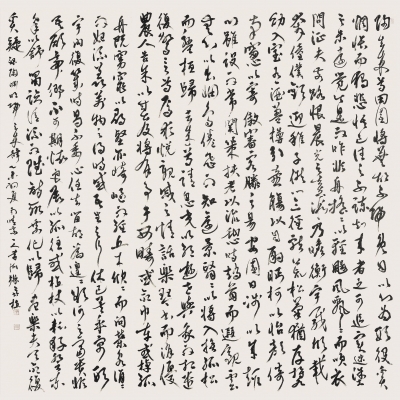 歸去來兮田園將蕪胡不歸既自以心為形役奚
惆悵而獨悲悟已往之不諫知來者之可追實迷途
其未遠覺今是而昨非舟搖搖以輕颺風飄飄而吹衣
問征夫以前路恨晨光之熹微乃瞻衡宇載欣載
奔僮僕歡迎稚子候門三徑就荒松菊猶存攜
幼入室有酒盈樽引壺觴以自酌眄庭柯以怡顏倚
南窗以寄傲審容膝之易安園日涉以成趣
門雖設而常關策扶老以流憩時矯首而遐觀雲
無心以出岫鳥倦飛而知還景翳翳以將入撫孤松
而盤桓歸去來兮請息交以絕遊世與我而相違
復駕言兮焉求悅親戚之情話樂琴書以消憂
農人告余以春及將有事於西疇或命巾車或棹孤
舟既窈窕以尋壑亦崎嶇而經丘木欣欣而向榮泉涓
涓而始流善萬物之得時感吾生之行休已矣乎寓形
宇內復幾時曷不委心任去留胡為遑遑兮欲何之富貴非
吾願帝鄉不可期懷良辰以孤往或植杖而耘耔登東
皋以舒嘯臨清流而賦詩聊乘化以歸盡樂夫天命復
奚疑